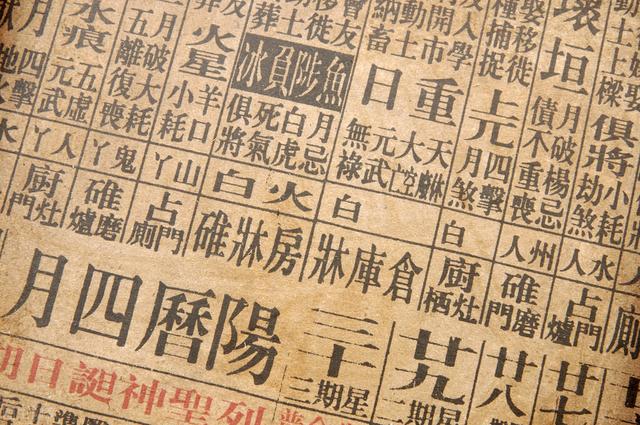 俱將
小耗
劫煞
水人
占門
爐
廿七
壞垣
月破楊忌
債不重喪
州人
碓磨
門
廿八
娶移徙
種捕捉
上元
四擊
月煞
白
廚灶
栖
廿九
星期二
開市
動土
納畜
重日
大空
元武
無祿
白
倉庫牀
三十
星期三
魚陟負冰
月忌
白虎
死氣
俱將
火白
房牀碓
火星
羊口
小耗
山丫
占門
廁
月破大耗
五離復喪
鬼丫
碓磨
爐
水痕
五虛
元武
人丫
廚灶
門
月
四擊
陽曆四月
列聖神誕日